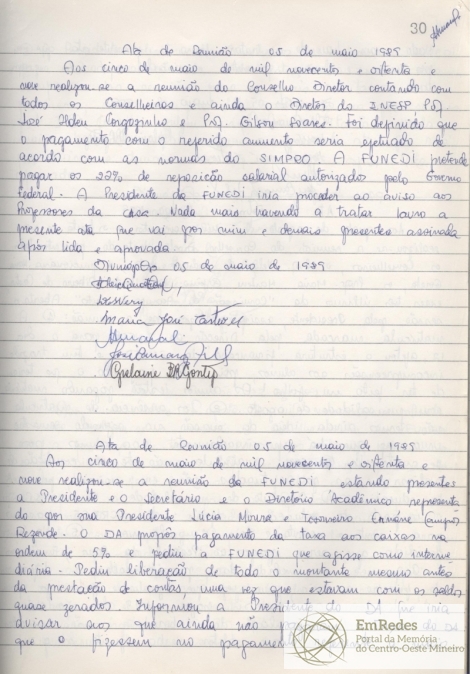 30
Ata de Reunião 05 de maio 1989
Aos cinco de maio de mil novecentos e oitenta e
nove realizou-se a reunião do Conselho Diretor contando com
todos os Conselheiros e ainda o Diretor do INESP Prof.
José Ilden Gorgozinho e Prof. Gilson Soares. Foi definido que
o pagamento com o referido aumento seria efetuado de
acordo com as normas do SIMPRO. A FUNEDI pretende
pagar os 22% de reposição salarial autorizados pelo Governo
Federal. A Presidente da FUNEDI iria proceder ao aviso aos
Professores da casa. Nada mais havendo a tratar lavro a
presente ata que vai por mim e demais presentes assinada
após lida e aprovada.
Divinópolis 05 de maio de 1989
Maria José
Ata de Reunião 05 de maio de 1989
Aos cinco de maio de mil novecentos e oitenta e
nove realizou-se a reunião da FUNEDI estando presentes
a Presidente e o Secretário e o Diretório Acadêmico representa
do por sua Presidente Lúcia Moura e Tesoureiro Ernáne Campos
Rezende. O DA propôs pagamento da taxa aos caixas na
ordem de 5% e pediu a FUNEDI que agisse como interme
diária. Pediu liberação de todo o montante mesmo antes
da prestação de contas, uma vez que estavam com os saldos
quase zerados. Informou a Presidente do DA que iria
avisar aos que ainda não
que o fizessem no pagamento
EmRedes
Portal da Memória
do Centro-Oeste Mineiro